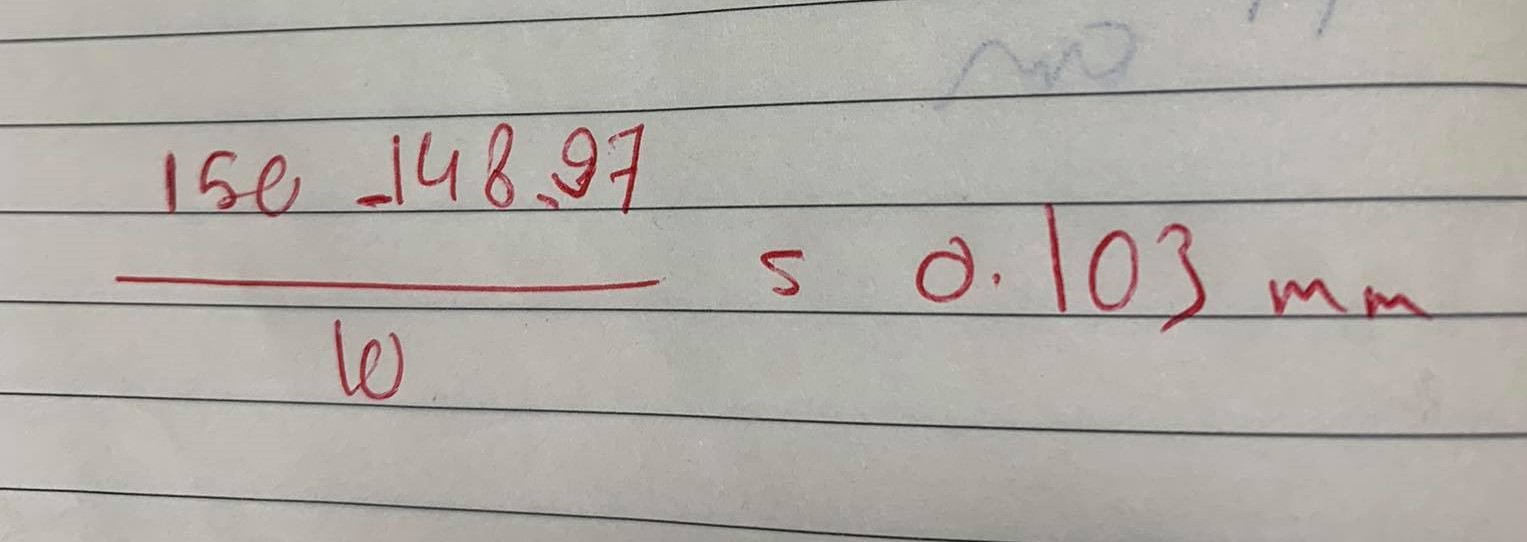 150 - 148.97
10
= 0.103 mm